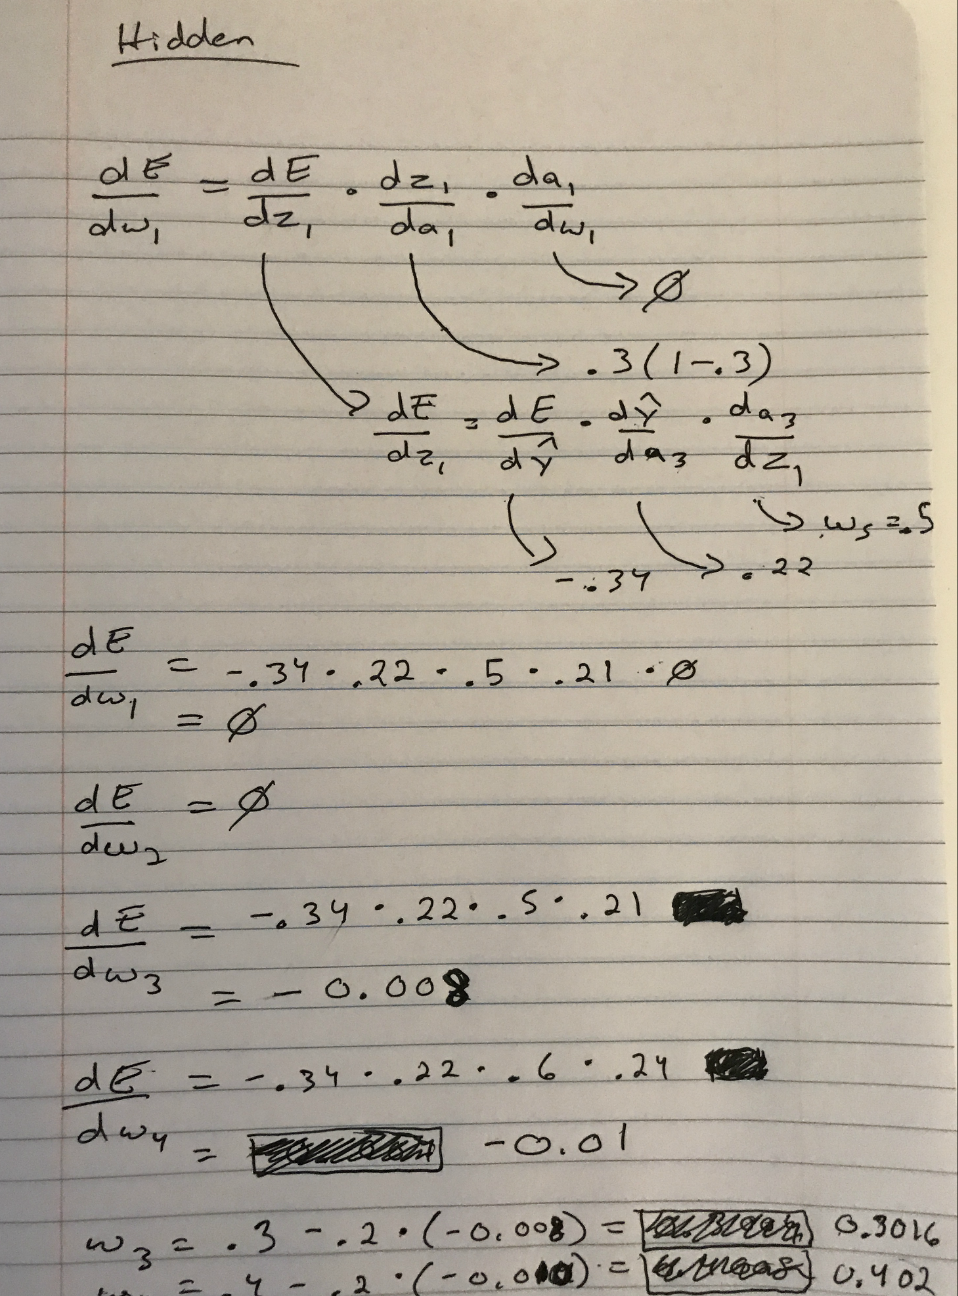 Hidden
dE/dw₁ = dE/dz₁ · dz₁/da₁ · da₁/dw₁
→ ∅
→ .3(1-.3)
→ dE/dz₁ = dE/dŶ · dŶ/da₃ · da₃/dz₁
→ w₅ = .5
→ -.34 → .22
dE/dw₁ = -.34 · .22 · .5 · .21 · ∅
= ∅
dE/dw₂ = ∅
dE/dw₃ = -.34 · .22 · .5 · .21
= -0.008
dE/dw₄ = -.34 · .22 · .6 · .24
= -0.01
w₃ = .3 - .2 · (-0.008) = 0.3016
= .4 - .2 · (-0.010) = 0.402